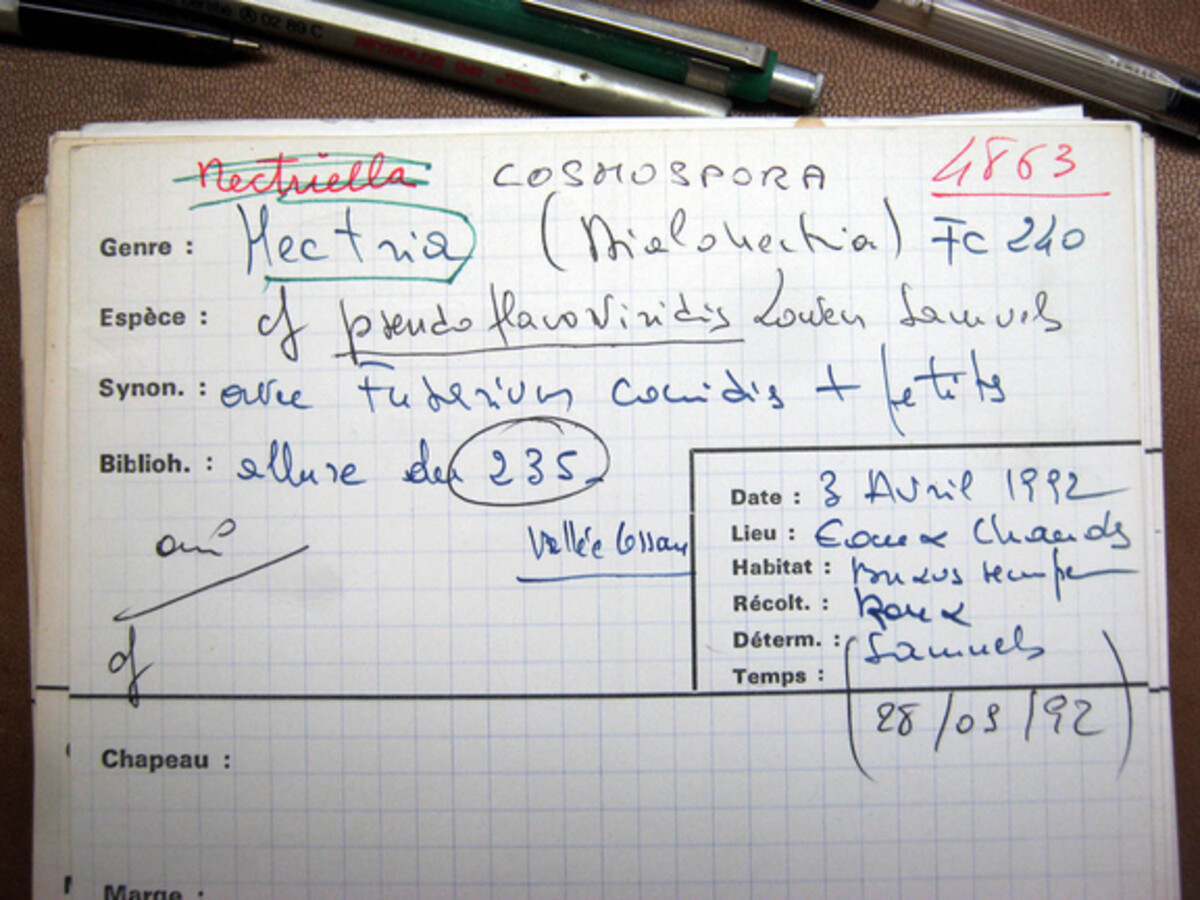 02 89 C
REYNOLDS
Nectriella COSMOSPORA 4863
Genre : Nectria (Dialonectria) FC 240
Espèce : cf pseudoflavoviridis Lowen Samuels
Synon. : avec Fusarium conidis + petits
Biblioh. : allure du 235
Vallée Ossau
cf
Date : 3 Avril 1992
Lieu : Eaux Chaudes
Habitat : Buxus semper
Récolt. : Roux
Déterm. : (Samuels
Temps : 28/09/92)
Chapeau :
Marge :